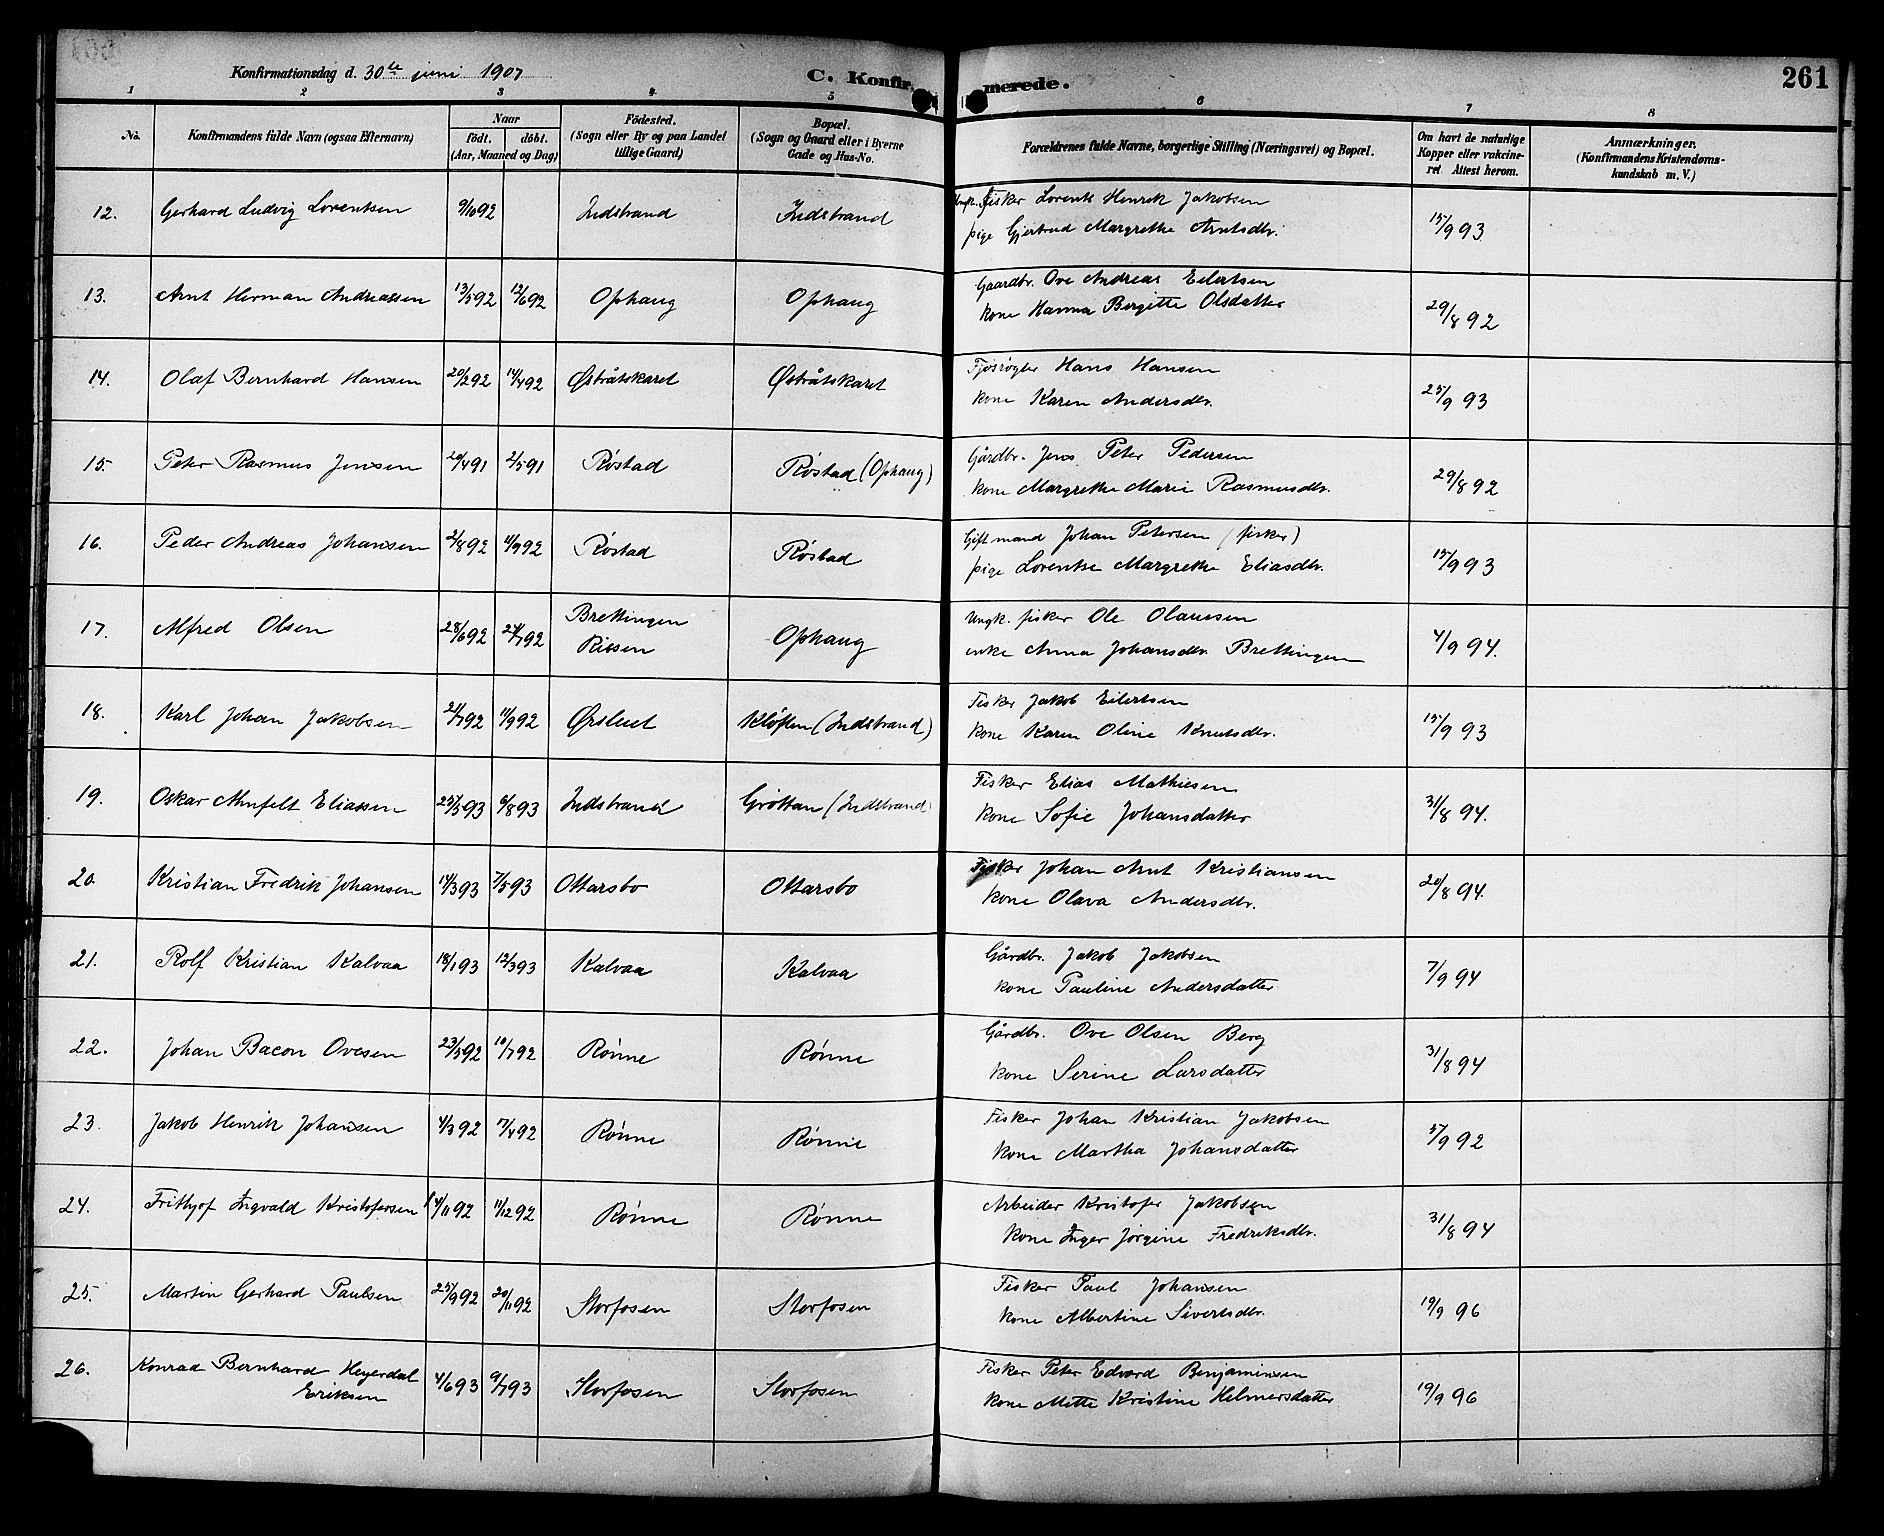 Konfirmationsdag d. 30te juni 1907
C. Konfirmerede.
261
1 2 3 4 5 6 7 8
No.
Konfirmandens fulde Navn (ogsaa Efternavn)
Naar
født. døbt.
(Aar, Maaned og Dag)
Fødested.
(Sogn eller By og paa Landet
tillige Gaard)
Bopæl.
(Sogn og Gaard eller i Byerne
Gade og Hus-No.
Forældrenes fulde Navne, borgerlige Stilling (Næringsvei) og Bopæl.
Om havt de naturlige
Kopper eller vakcine-
ret. Attest herom.
Anmærkninger.
(Konfirmandens Kristendoms-
kundskab m. V.)
12. Gerhard Ludvig Lorentsen 9/10 92 Indstrand Indstrand
Ungk. Fisker Lorents Henrik Jakobsen
pige Gjertrud Margrethe Arntsdtr. 15/9 93
13. Arnt Herman Andreassen 13/5 92 12/6 92 Ophaug Ophaug
Gaardbr. Ove Andreas Eilertsen
kone Hanna Bergitte Olsdatter 29/8 92
14. Olaf Bernhard Hansen 20/2 92 14/4 92 Østråtskaret Østråtskaret
Fjøsrøgter Hans Hansen
kone Karen Andersdtr. 25/9 93
15. Peter Rasmus Jensen 20/4 91 2/5 91 Røstad Røstad (Ophaug)
Gårdbr. Jens Peter Pedersen
kone Margrethe Marie Rasmusdtr. 29/8 92
16. Peder Andreas Johansen 2/8 92 11/9 92 Røstad Røstad
Gift mand Johan Petersen (fisker)
pige Lorentse Margrethe Eliasdtr. 15/9 93
17. Alfred Olsen 28/6 92 24/7 92 Brettingen
Rissen Ophaug
Ungk. fisker Ole Olaussen
enke Anna Johansdtr. Brettingen 4/9 94.
18. Karl Johan Jakobsen 21/7 92 11/9 92 Ørsluet Kløften (Indstrand)
Fisker Jakob Eilertsen
kone Karen Oline Knutsdtr. 15/9 93
19. Oskar Arnfelt Eliassen 25/5 93 6/8 93 Indstrand Grøttan (Indstrand)
Fisker Elias Mathiesen
kone Sofie Johansdatter 31/8 94.
20 Kristian Fredrik Johansen 14/3 93 7/5 93 Ottarsbo Ottarsbo
Fisker Johan Arnt Kristiansen
kone Olava Andersdtr. 20/8 94.
21. Rolf Kristian Kalvaa 18/1 93 12/3 93 Kalvaa Kalvaa
Gårdbr. Jakob Jakobsen
kone Pauline Andersdatter 7/9 94
22. Johan Bacon Ovesen 23/5 92 10/7 92 Rønne Rønne
Gårdbr. Ove Olsen Berg
kone Serine Larsdatter 31/8 94
23. Jakob Henrik Johansen 4/3 92 17/4 92 Rønne Rønne
Fisker Johan Kristian Jakobsen
kone Martha Johansdatter 5/9 92
24. Frithjof Ingvald Kristofersen 4/11 92 11/12 92 Rønne Rønne
Arbeider Kristofer Jakobsen
kone Inger Jørgine Fredriksdtr. 31/8 94
25. Martin Gerhard Paulsen 25/9 92 20/11 92 Storfosen Storfosen
Fisker Paul Johansen
kone Albertine Sivertsdtr. 19/9 96
26. Konrad Bernhard Heyerdal
Eriksen 4/6 93 9/7 93 Storfosen Storfosen
Fisker Peter Edvard Benjaminsen
kone Mette Kristine Helmersdatter 19/9 96